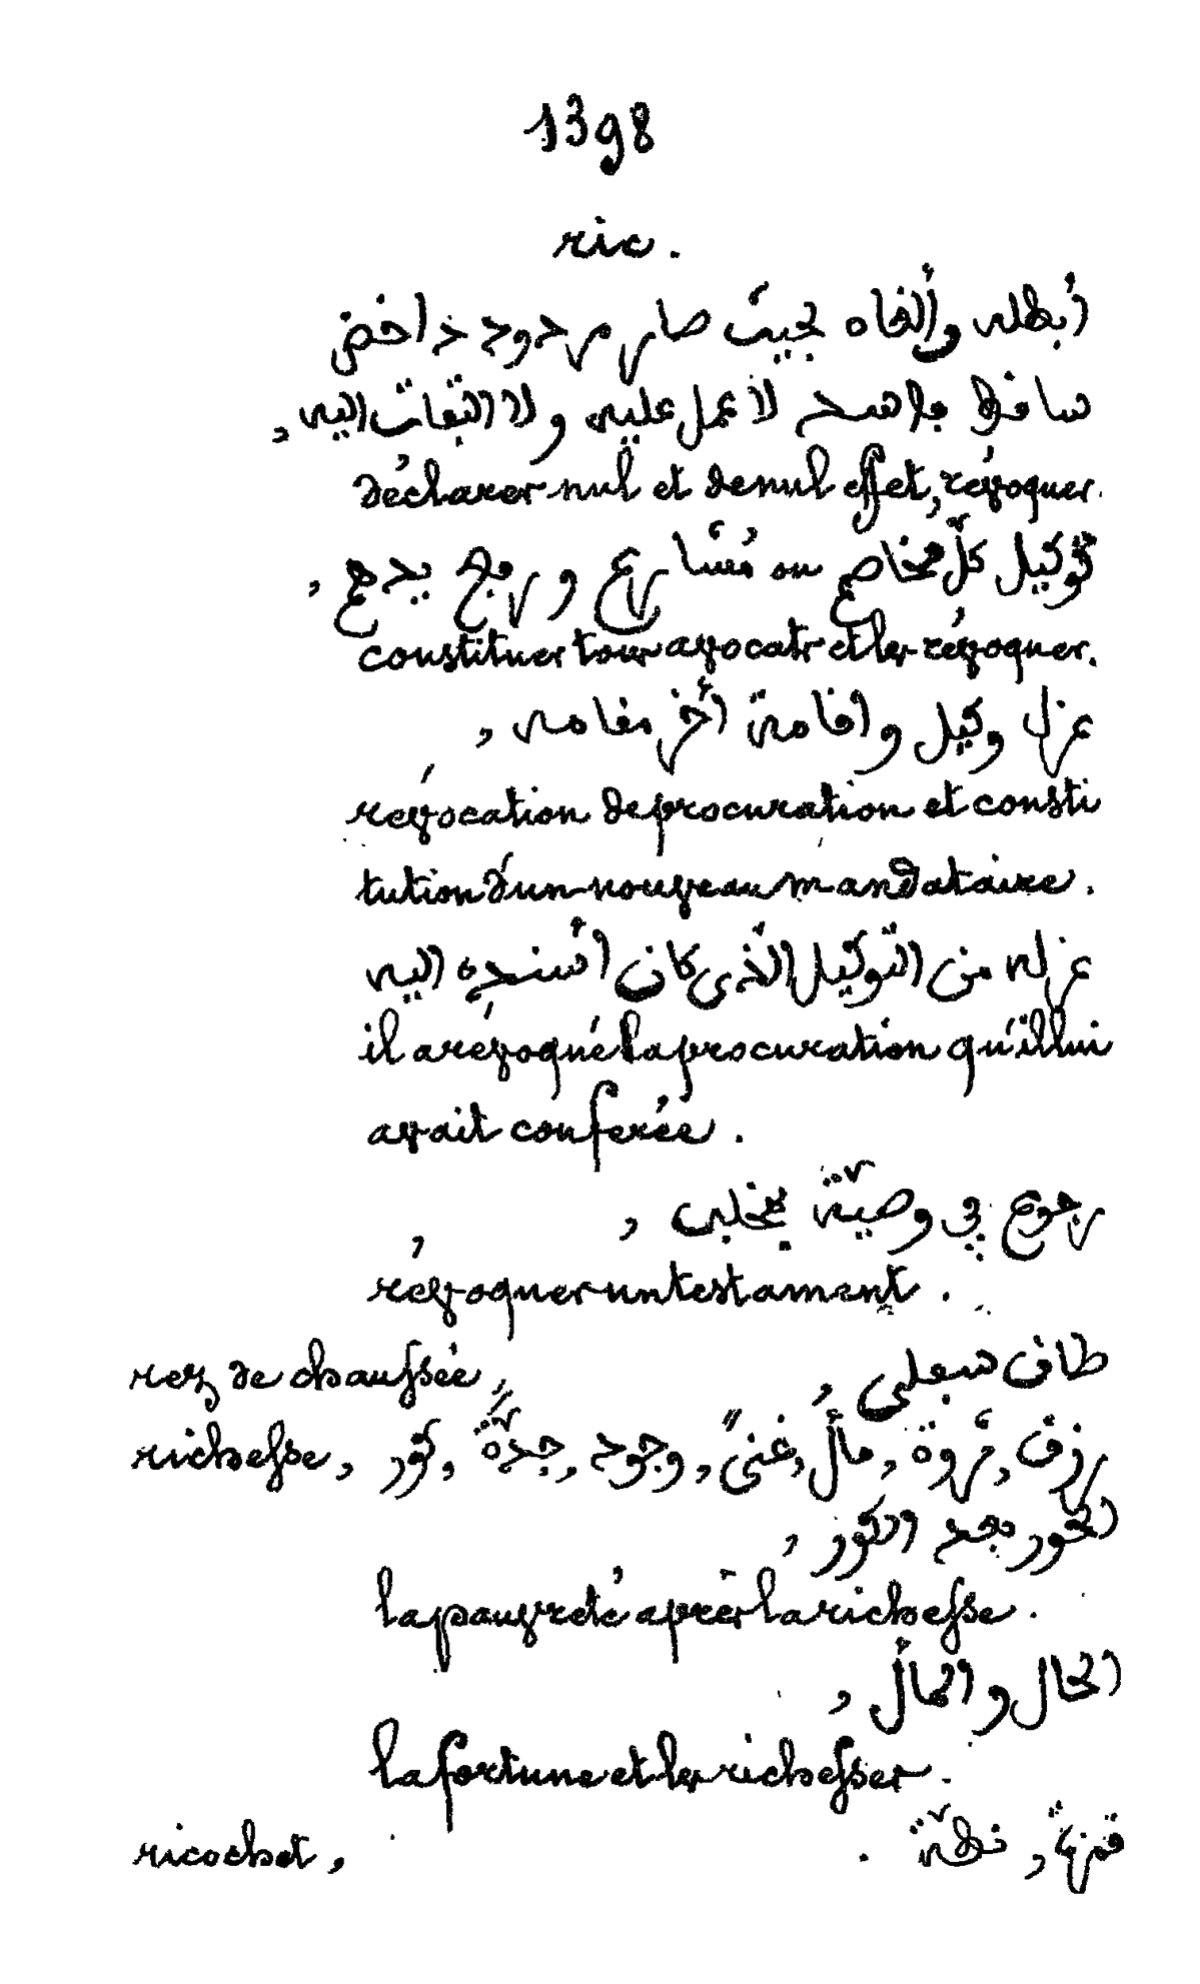 1398
ric.
أبطله وألغاه بحيث صار مردود داحض
ساقط فاسد لا عمل عليه ولا التفات اليه,
déclarer nul et de nul effet, révoquer.
توكيل كلّ مخاصم ou مُشارع و رجع يدجع,
constituer tous avocats et les révoquer.
عزل وكيل و اقامة أخر مقامه,
révocation de procuration et consti
tution d'un nouveau mandataire.
عزله من التوكيل الّذى كان أسنده اليه
il a révoqué la procuration qu'il lui
avait conferée.
رجوع في وصيّة
révoquer un testament.
rez de chaussée, طاق سفلي
richesse, رزق, ثروة, مال, غنىً, وجود, جدّةٌ, كور
الحور بعد الكور,
la pauvreté après la richesse.
الحال و المال,
la fortune et les richesses.
ricochet, نطّة.